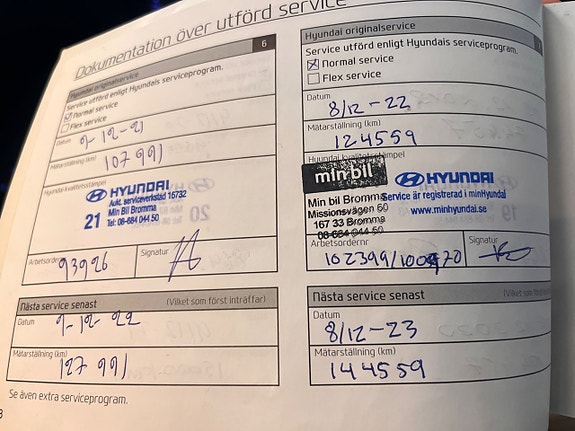 Dokumentation över utförd service
Hyundai originalservice
6
Service utförd enligt Hyundais serviceprogram.
Normal service
Flex service
Datum
9-12-21
Mätarställning (km)
107 991
Hyundai kvalitetsstämpel
HYUNDAI
Aukt. serviceverkstad 16732
21 Min Bil Bromma
Tel: 08-684 044 50
Arbetsordernr
93926
Signatur
Nästa service senast
(Vilket som först inträffar)
Datum
9-12-22
Mätarställning (km)
127 991
Se även extra serviceprogram.
Hyundai originalservice
Service utförd enligt Hyundais serviceprogram.
Normal service
Flex service
Datum
8/12-22
Mätarställning (km)
124559
Hyundai kvalitetsstämpel
min bil
HYUNDAI
Min bil Bromma
Service är registrerad i minHyundai
Missionsvägen 60
www.minhyundai.se
167 33 Bromma
08-684 044 50
Arbetsordernr
Signatur
Nästa service senast
(Vilket som först
Datum
8/12-23
Mätarställning (km)
144559